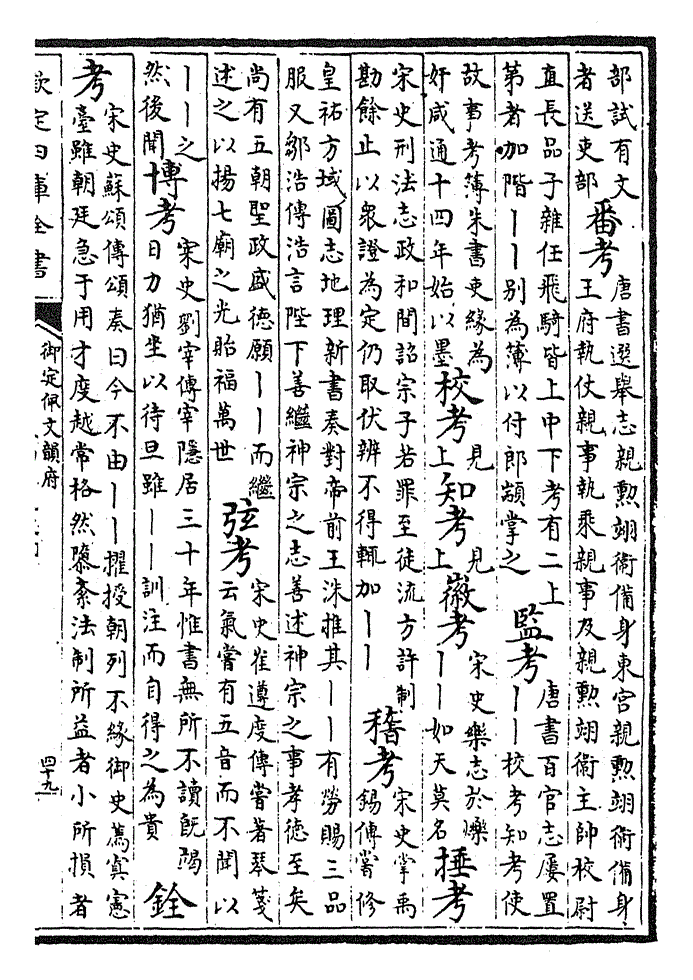 部試有文
者送吏部
番考
唐書選舉志親勲翊衛備身東宮親勲翊衛備身
王府執仗親事執乘親事及親勲翊衛主帥校尉
直長品子雜任飛騎皆上中下考有二上
第者加階丨丨别為簿以付郎顓掌之
監考
唐書百官志屢置
丨丨校考知考使
故事考簿朱書吏緣為
奸咸通十四年始以墨
校考
見上
知考
見上
徽考
宋史樂志於爍
丨丨如天莫名
捶考
宋史刑法志政和間詔宗子若罪至徒流方許制
勘餘止以衆證為定仍取伏辨不得輒加丨丨
稽考
宋史掌禹
錫傳嘗修
皇祐方域圖志地理新書奏對帝前王洙推其丨丨有勞賜三品
服又鄒浩傳浩言陛下善繼神宗之志善述神宗之事孝德至矣
尚有五朝聖政盛德願丨丨而繼
述之以揚七廟之光貽福萬世
弦考
宋史崔遵度傳嘗著琴箋
云氣嘗有五音而不聞以
丨丨之
然後聞
博考
宋史劉宰傳宰隱居三十年惟書無所不讀既竭
日力猶坐以待旦雖丨丨訓注而自得之為貴
銓
考
宋史蘇頌傳頌奏曰今不由丨丨擢授朝列不緣御史薦寘憲
臺雖朝廷急于用才度越常格然隳紊法制所益者小所損者
欽定四庫全書
御定佩文韻府
四十九